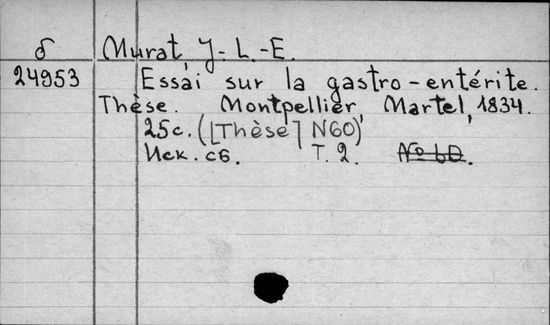 δ Murat, J-L.-E.
24953 Essai sur la gastro-entérite.
Thèse. Montpellier, Martel, 1834.
25c. ([Thèse] N60)
Иск. сб. Т. 2. № 60.